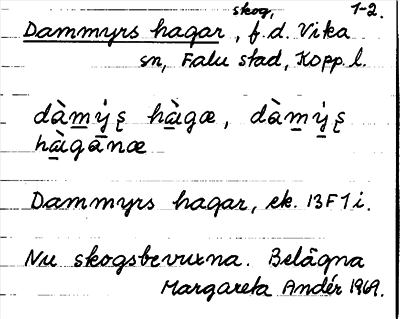 skog, 1-2.
Dammyrs hagar, f.d. Vika
sn, Falu stad, Kopp l.
dàmýş hàgæ, dàmýş
hàgānæ
Dammyrs hagar, ek. 13F1i.
Nu skogsbevuxna. Belägna
Margareta Andér 1969.